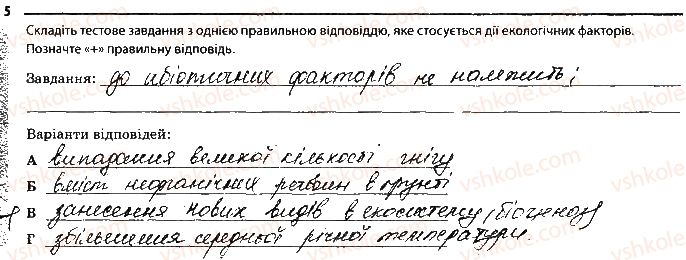 5
Складіть тестове завдання з однією правильною відповіддю, яке стосується дії екологічних факторів.
Позначте «+» правильну відповідь.
Завдання: до абіотичних факторів не належить:
Варіанти відповідей:
А випадання великої кількості снігу
Б вміст неорганічних речовин в ґрунті
+ В занесення нових видів в екосистему (біогеноз)
Г збільшення середньої річної температури.